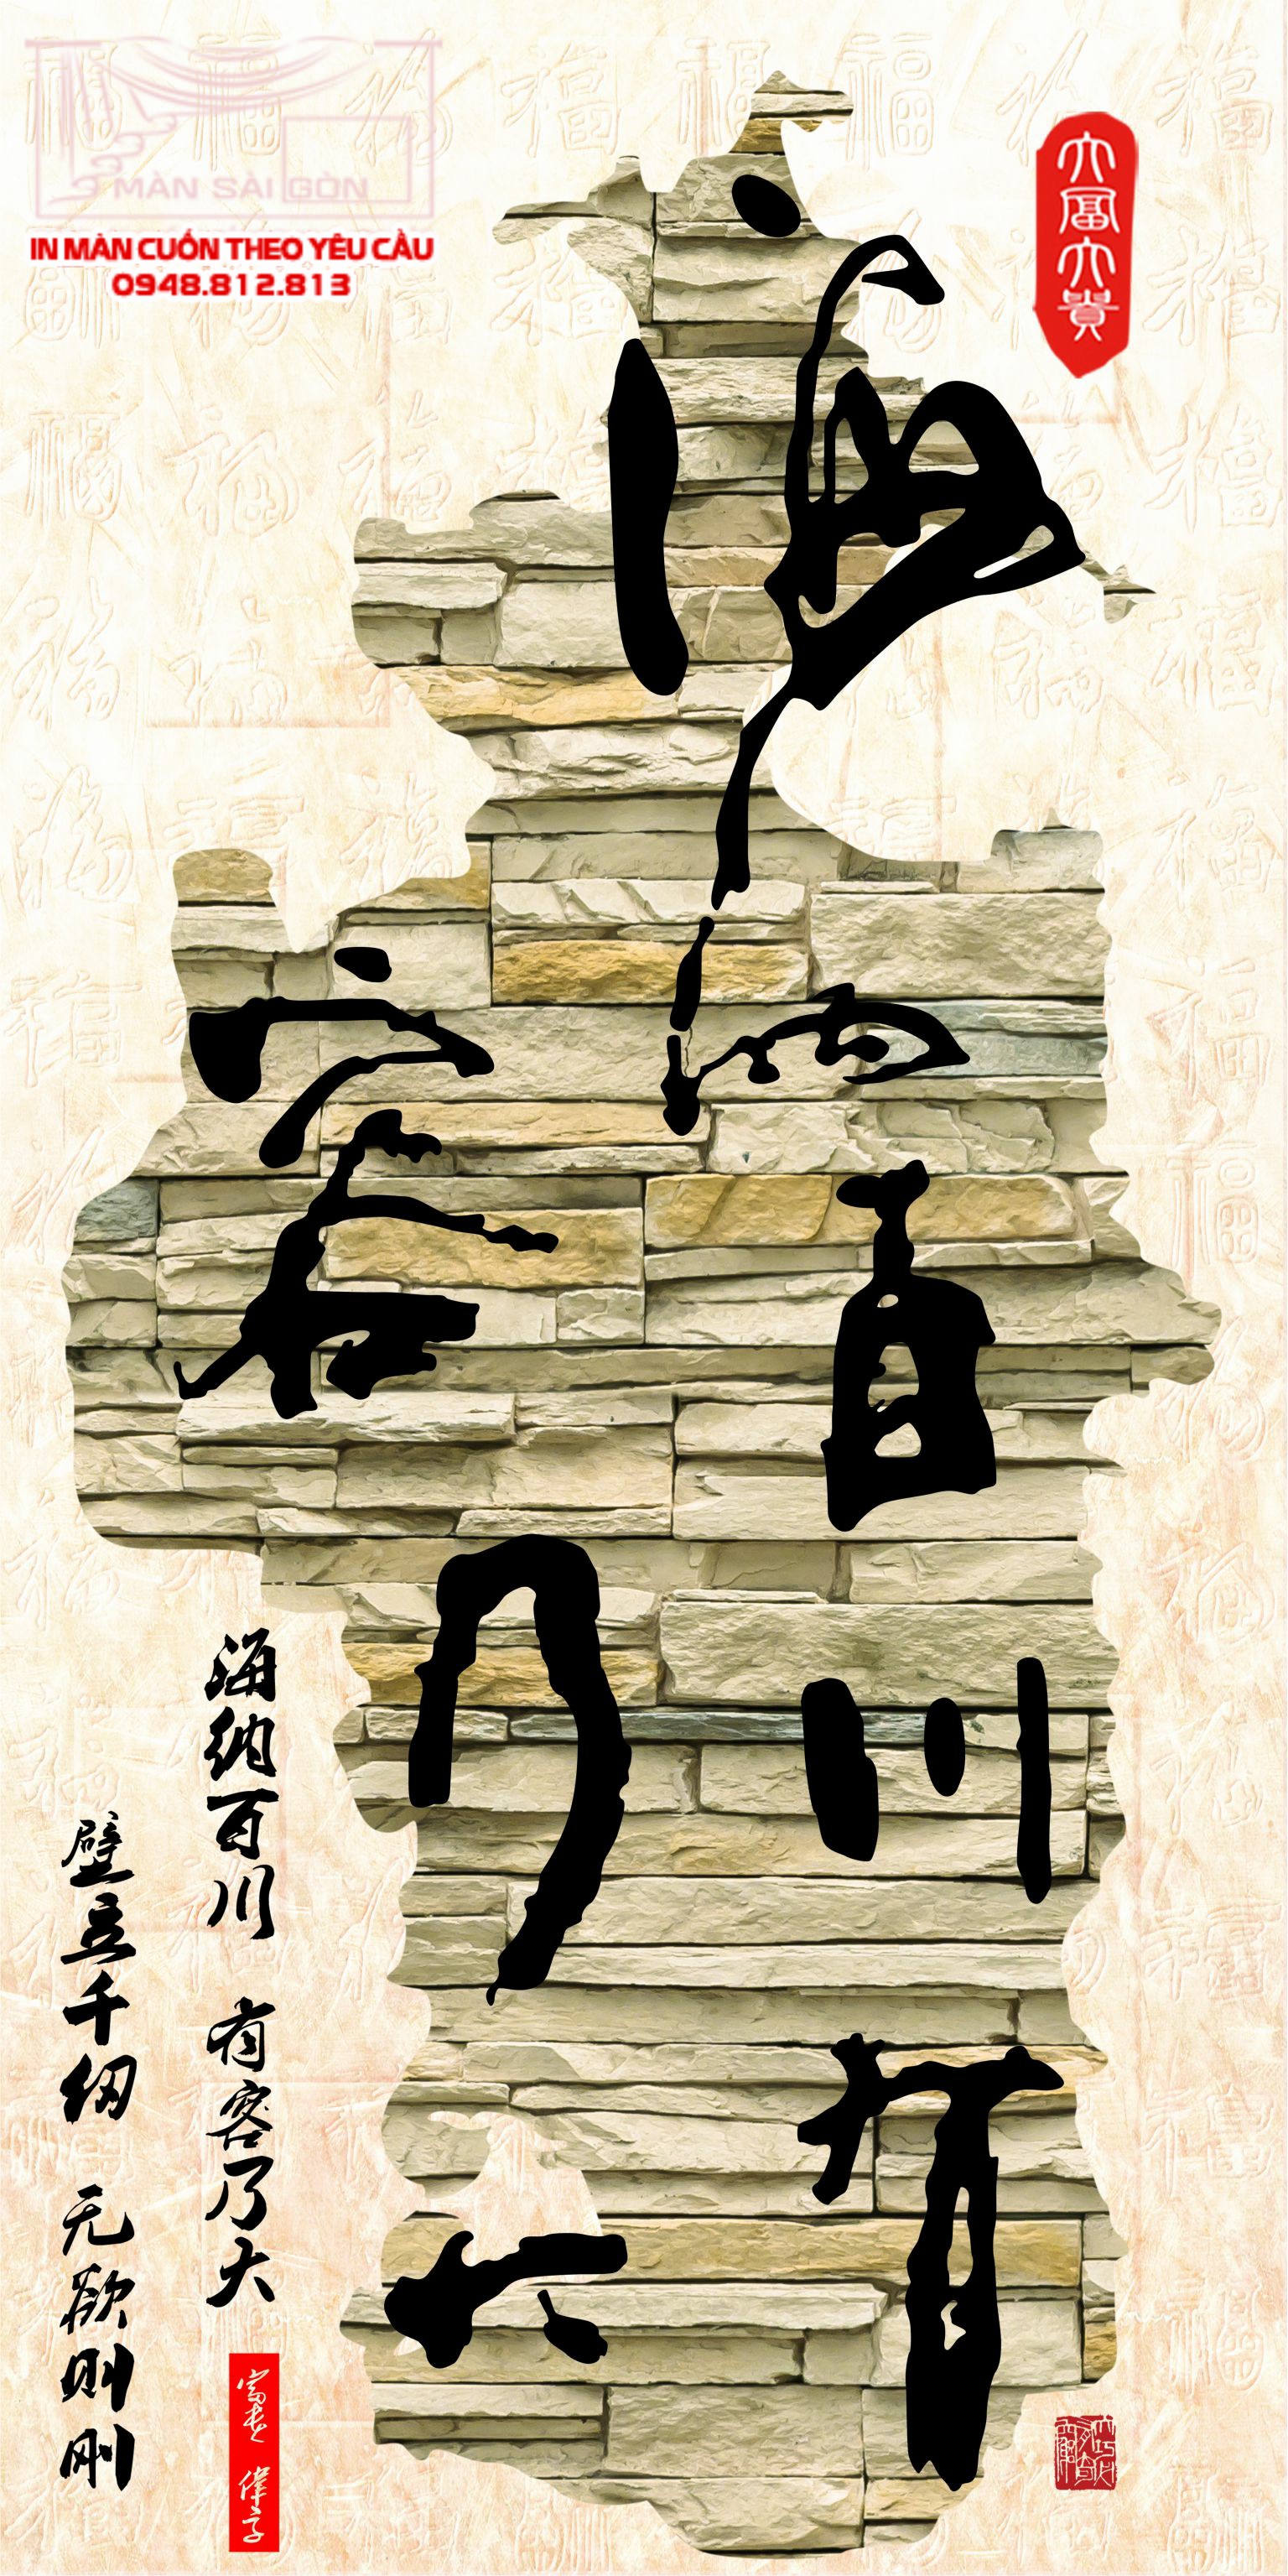 MÀN SÀI GÒN
IN MÀN CUỐN THEO YÊU CẦU
0948.812.813
大富大贵
海纳百川有
容乃大
海纳百川 有容乃大
壁立千仞 无欲则刚